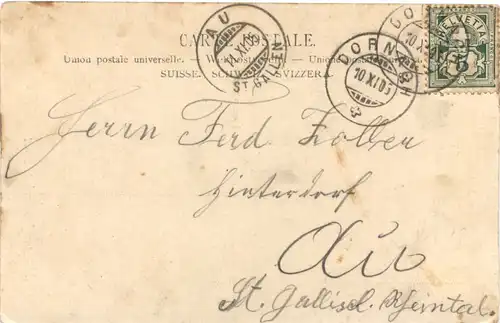 CARTE POSTALE.
Union postale universelle. — Weltpostverein. — Unione postale universale.
SUISSE. SCHWEIZ. SVIZZERA.
AU
11.XI.05
ST. GALLEN
DORNACH
10 XI 05
DO
10 X
HELVETIA
Herrn Ferd Zoller
Hinterdorf
Au
St. Gallisch. Rheintal.